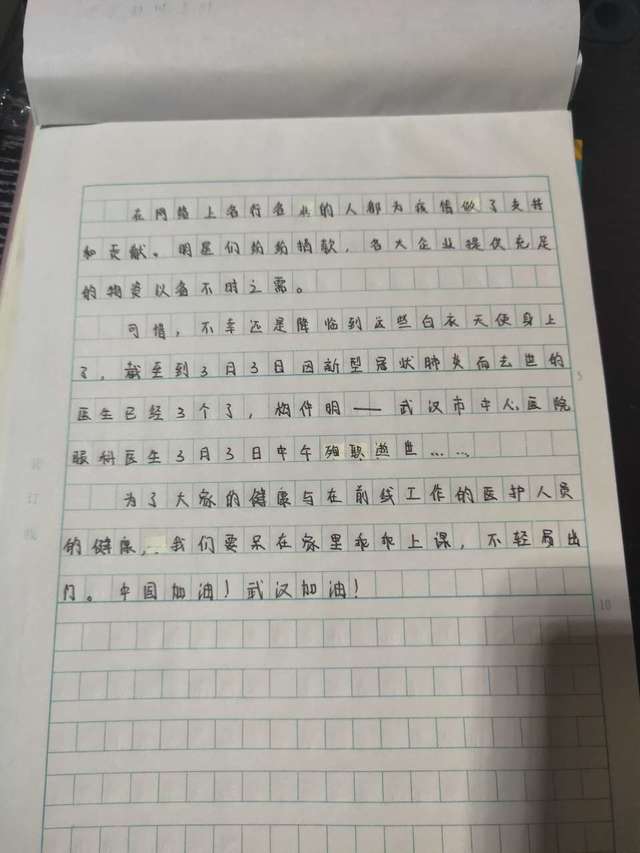 在网络上各行各业的人都为疫情做了支持
和贡献。明星们纷纷捐款，各大企业提供充足
的物资以备不时之需。
可惜，不幸还是降临到这些白衣天使身上
了，截至到3月3日因新型冠状肺炎而去世的
医生已经3个了，梅仲明——武汉市中心医院
眼科医生3月3日中午殉职逝世……
为了大家的健康与在前线工作的医护人员
的健康，我们要呆在家里乖乖上课，不轻易出
门。中国加油！武汉加油！
5
10
装
订
线